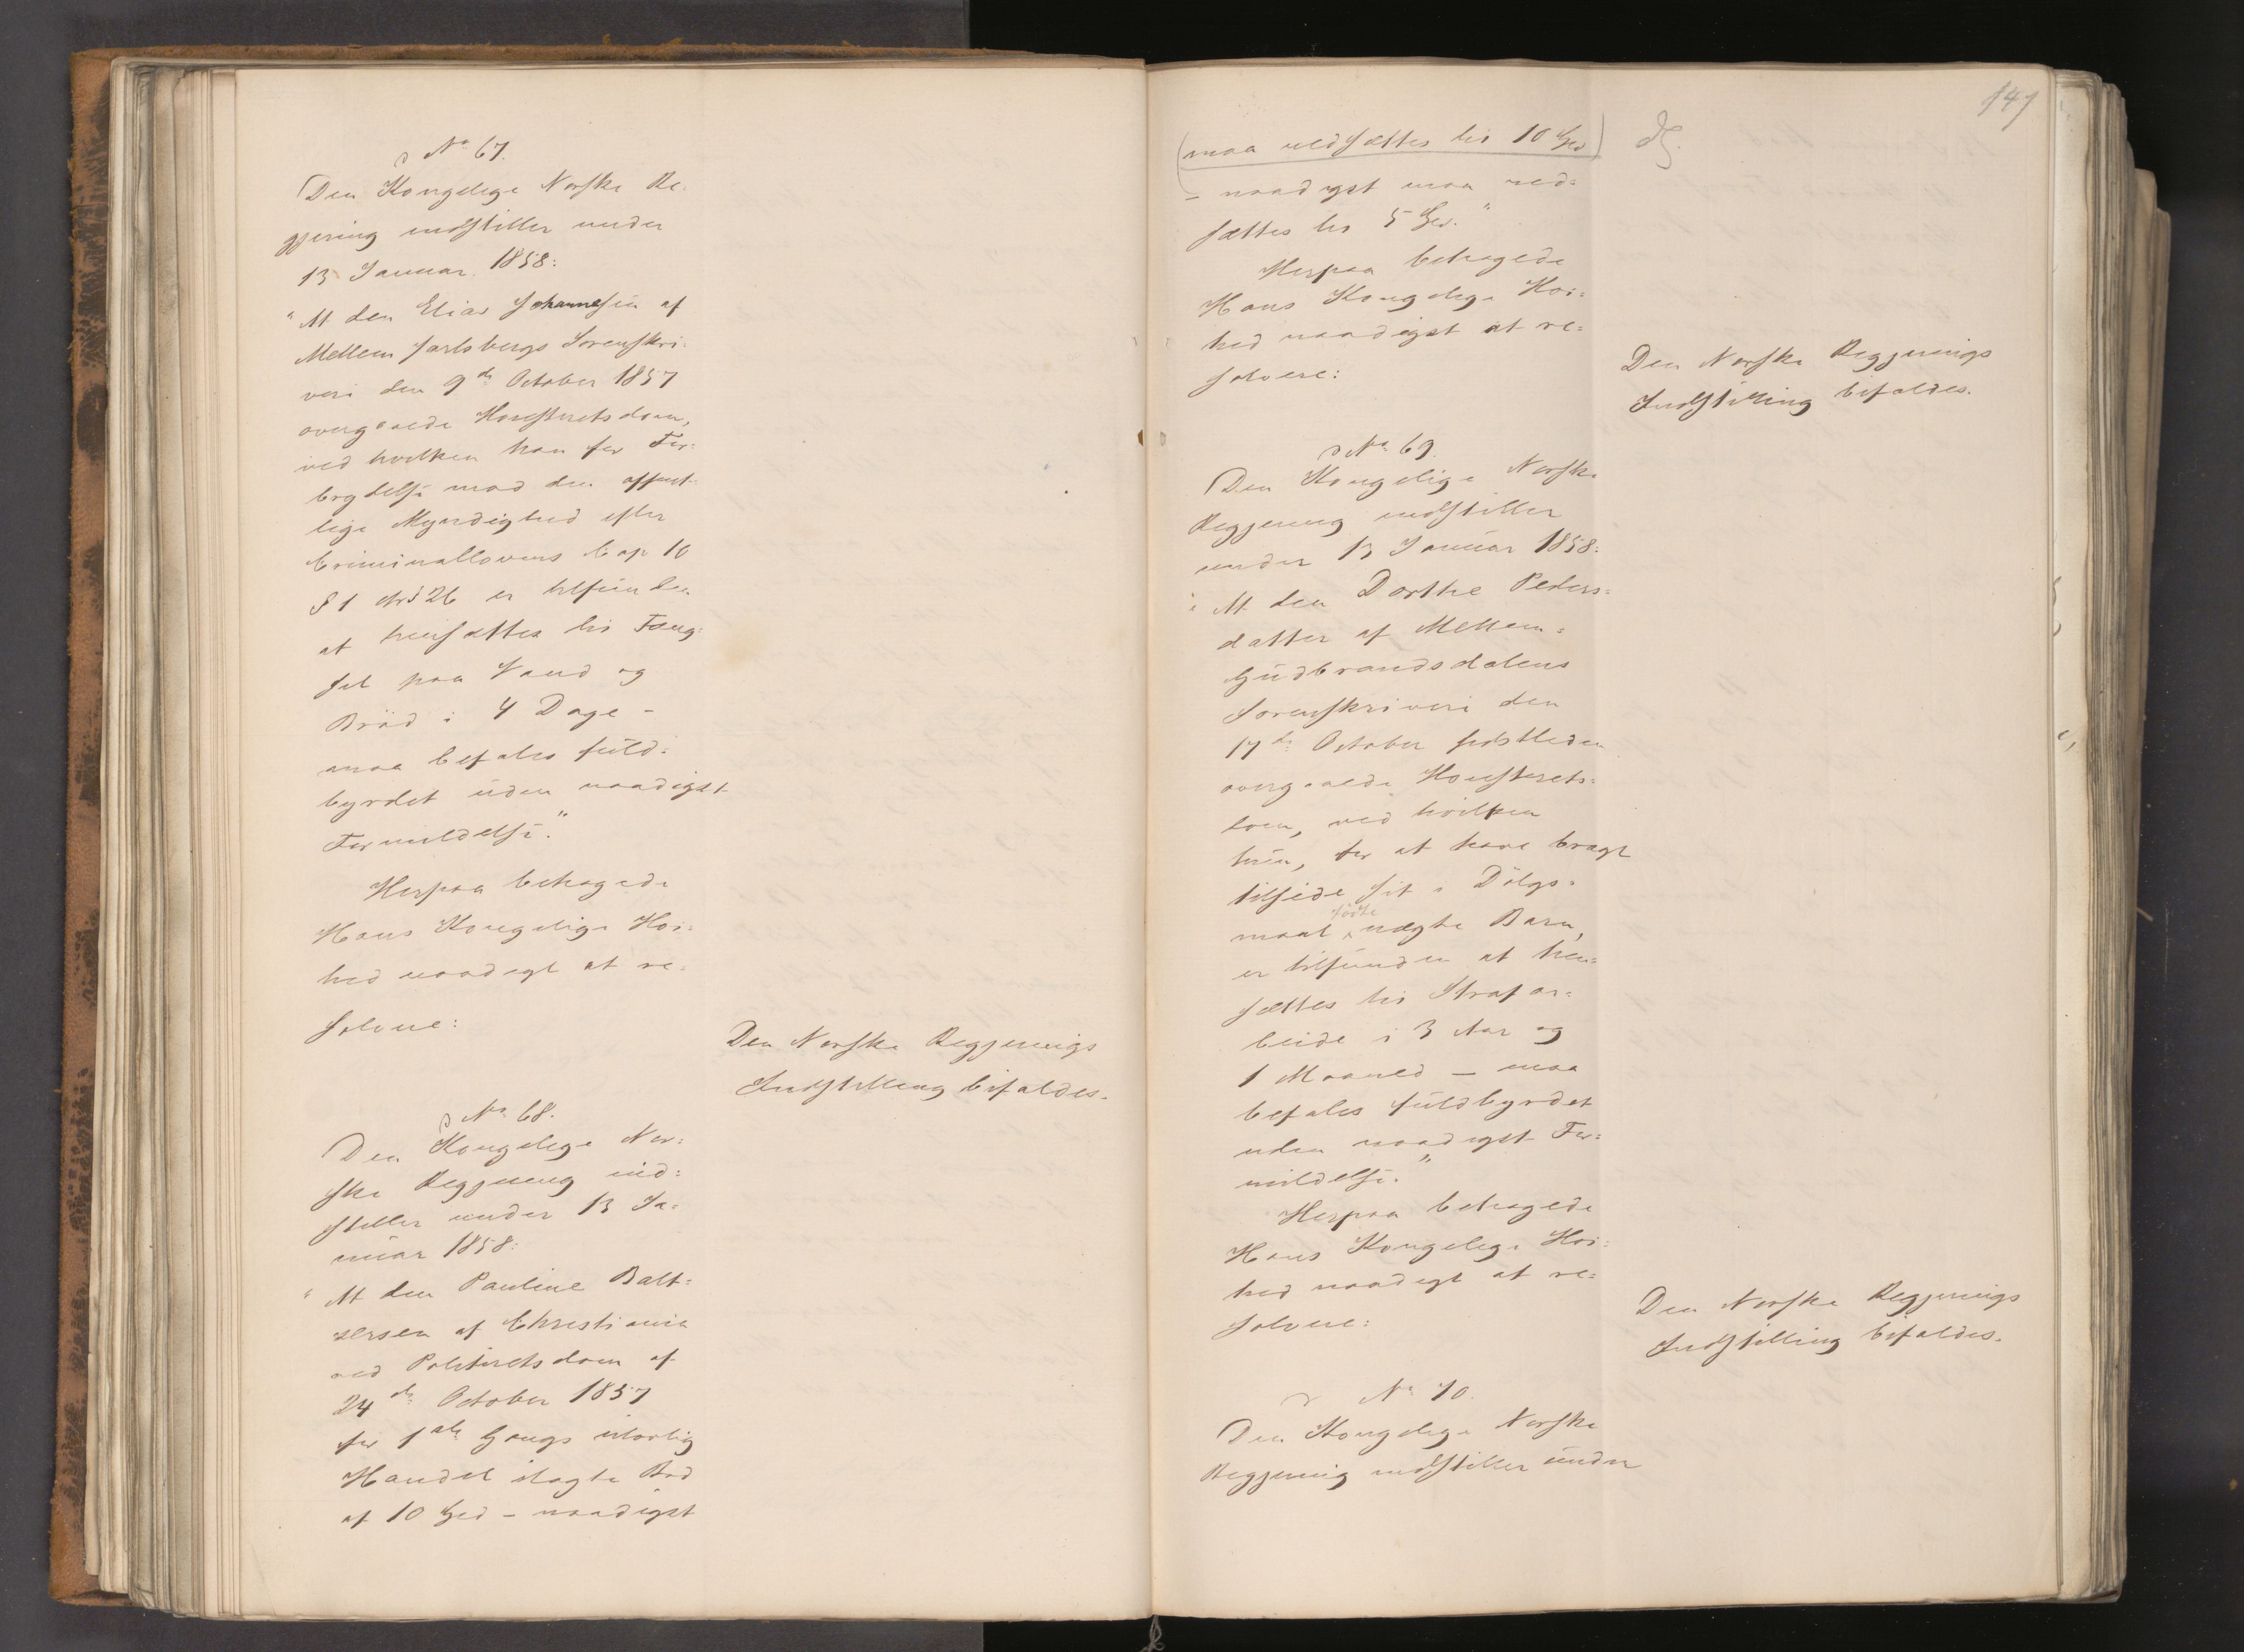 No 67.
Den Kongelige Norske Re-
gjering indstiller under
13 Januar 1858:
"At den Elias Johannesen af
Mellem Jarlsbergs Sorenskri-
veri den 9de October 1857
overgaaede Høiesteretsdom,
ved hvilken han for For-
brydelse mod den offent-
lige Myndighed efter
Criminallovens Cap 10
§ 1 cfr § 26 er tilfunden
at hensættes til Fæng-
sel paa Vand og
Bröd i 4 Dage –
maa befales fuld-
byrdet uden naadigst
Formildelse."
Herpaa behagede
Hans Kongelige Høi-
hed naadigst at re-
solvere:
Den Norske Regjerings
Indstilling bifaldes.
No 68.
Den Kongelige Nor-
ske Regjering ind-
stiller under 13 Ja-
nuar 1858:
"At den Pauline Balt-
zersen af Christiania
ved Politiretsdom af
24de October 1857
for 1ste Gangs ulovlig
Handel ilagte Bod
af 10 Spd – naadigst
147
(maa nedsættes til 10 Spd)
– naadigst maa ned-
sættes til 5 Spd."
Herpaa behagede
Hans Kongelige Høi-
hed naadigst at re-
solvere:
Den Norske Regjerings
Indstilling bifaldes.
No 69.
Den Kongelige Norske
Regjering indstiller
under 13 Januar 1858:
"At den Dorthe Peders-
datter af Mellem-
Gudbrandsdalens
Sorenskriveri den
17de October sidstleden
overgaaede Høiesterets-
dom, ved hvilken
hun, for at have bragt
tilside sit i Dölgs-
maal födte uægte Barn,
er tilfunden at hen-
sættes til Strafar-
beide i 3 Aar og
1 Maaned – maa
befales fuldbyrdet
uden naadigst For-
mildelse."
Herpaa behagede
Hans Kongelige Høi-
hed naadigst at re-
solvere:
Den Norske Regjerings
Indstilling bifaldes.
No 70.
Den Kongelige Norske
Regjering indstiller under